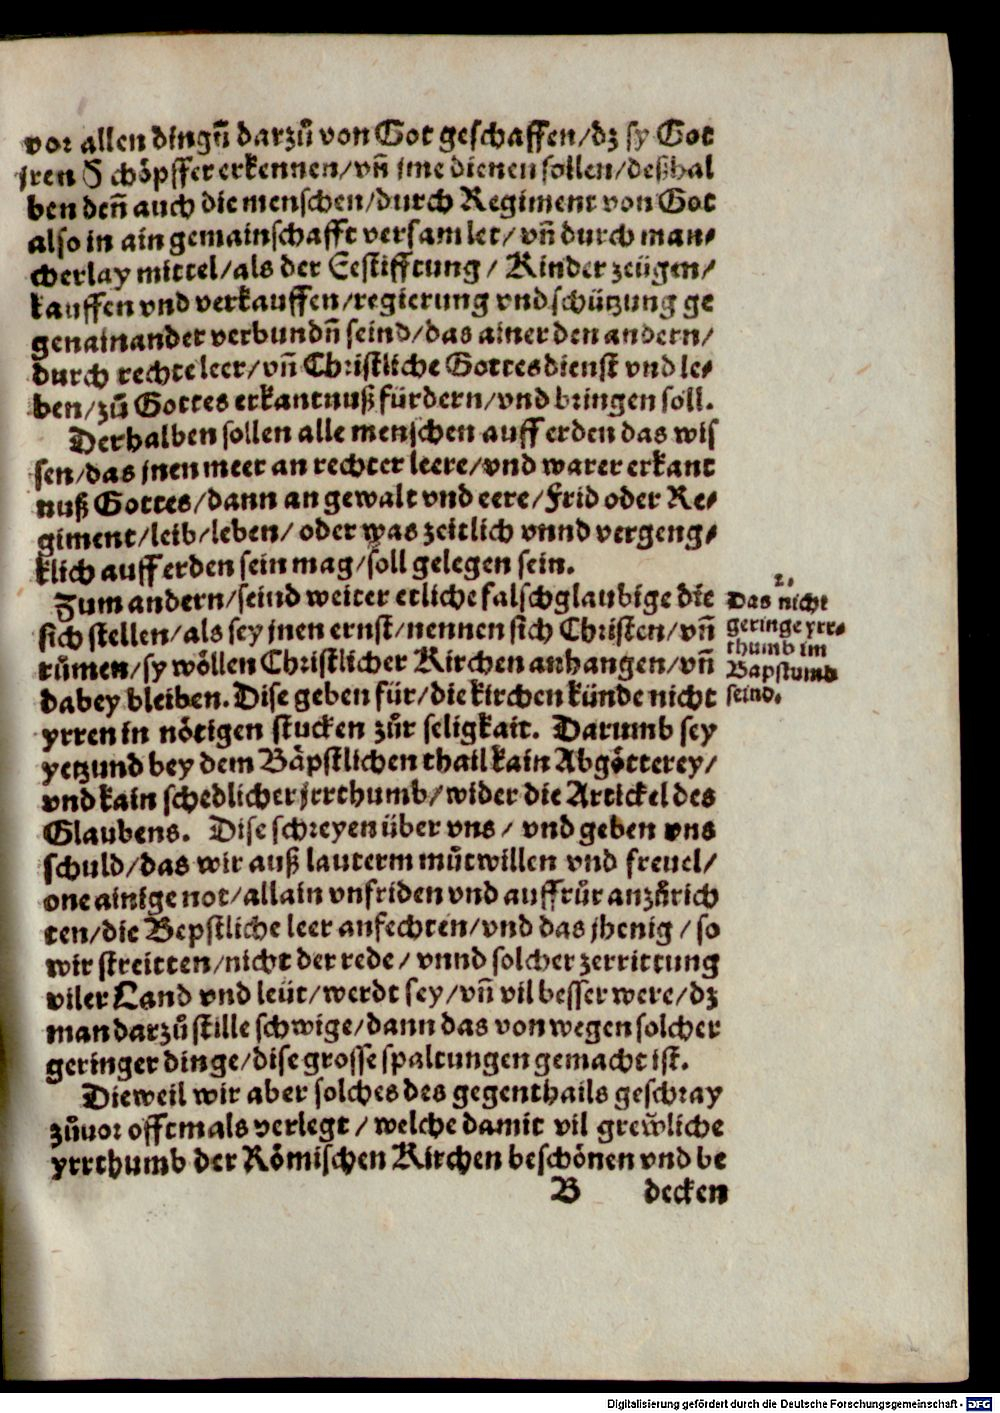 vor allen dingñ darzů von Got geschaffen/dz sy Got
jren Schöpffer erkennen/vñ jme dienen sollen/deßhal
ben deñ auch die menschen/durch Regiment von Got
also in ain gemainschafft versamlet/vñ durch man⸗
cherlay mittel/als der Eestifftung/ Kinder zeügen/
kauffen vnd verkauffen/regierung vnd schützung ge
genainander verbundñ seind/das ainer den andern/
durch rechte leer/vñ Christliche Gottesdienst vnd le⸗
ben/zů Gottes erkantnuß fürdern/vnd bringen soll.
Derhalben sollen alle menschen auff erden das wis
sen/das jnen meer an rechter leere/vnd warer erkant
nuß Gottes/dann an gewalt vnd eere/frid oder Re⸗
giment/leib/leben/ oder was zeitlich vnnd vergeng⸗
klich auff erden sein mag/soll gelegen sein.
Zum andern/seind weiter etliche falschglaubige die
sich stellen/als sey jnen ernst/nennen sich Christen/vñ
růmen/sy wöllen Christlicher Kirchen anhangen/vñ
dabey bleiben. Dise geben für/die kirchen künde nicht
yrren in nötigen stucken zůr seligkait. Darumb sey
yetzund bey dem Bäpstlichen thail kain Abgötterey/
vnd kain schedlicher jrrthumb/wider die Artickel des
Glaubens. Dise schreyen über vns/ vnd geben vns
schuld/das wir auß lauterm můtwillen vnd freuel/
one ainige not/allain vnfriden vnd auffrůr anzůrich
ten/die Bepstliche leer anfechten/vnd das jhenig/so
wir streitten/nicht der rede/ vnnd solcher zerrittung
viler Land vnd leüt/werdt sey/vñ vil besser were/dz
man darzů stille schwige/dann das von wegen solcher
geringer dinge/dise grosse spaltungen gemacht ist.
Dieweil wir aber solches des gegenthails geschray
zůuor offtmals verlegt/welche damit vil grewliche
yrrthumb der Römischen Kirchen beschönen vnd be
B decken
2.
Das nicht
geringe yrr⸗
thumb im
Bapstumb
seind.
Digitalisierung gefördert durch die Deutsche Forschungsgemeinschaft - DFG